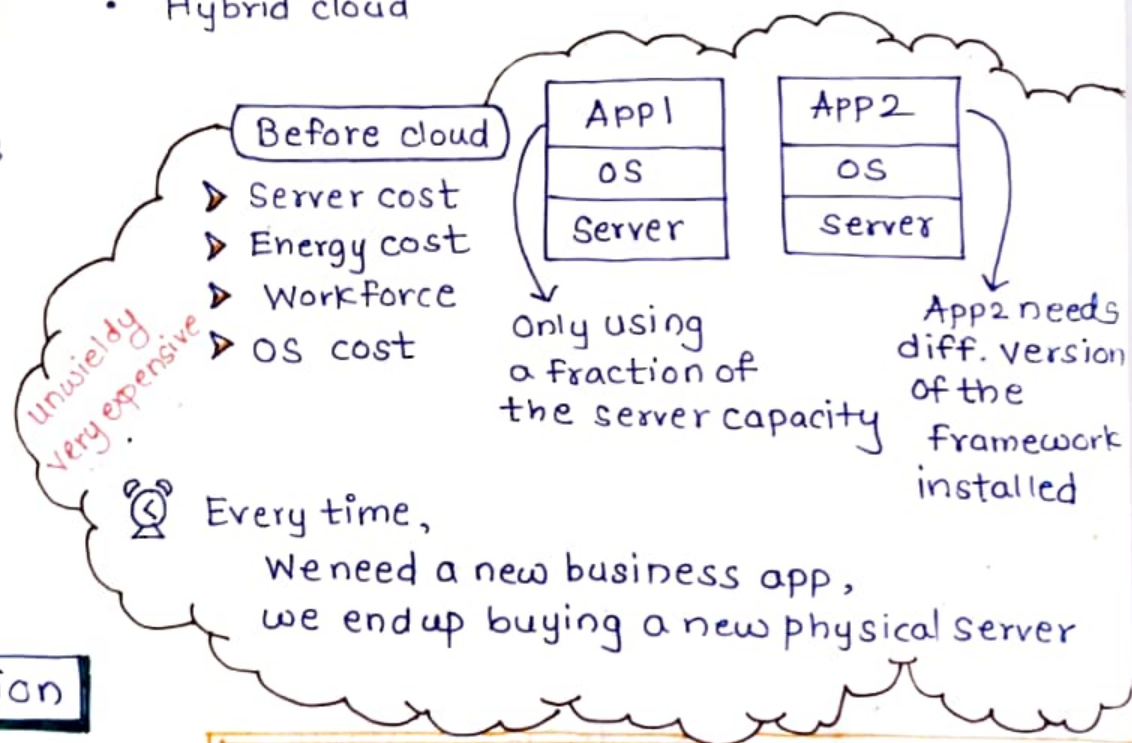 • Hybrid cloud
Before cloud
➤ Server cost
➤ Energy cost
➤ Workforce
➤ OS cost
unwieldy
very expensive
App1
OS
Server
APP2
OS
Server
Only using
a fraction of
the server capacity
App2 needs
diff. version
of the
framework
installed
Every time,
We need a new business app,
we end up buying a new physical server
ion